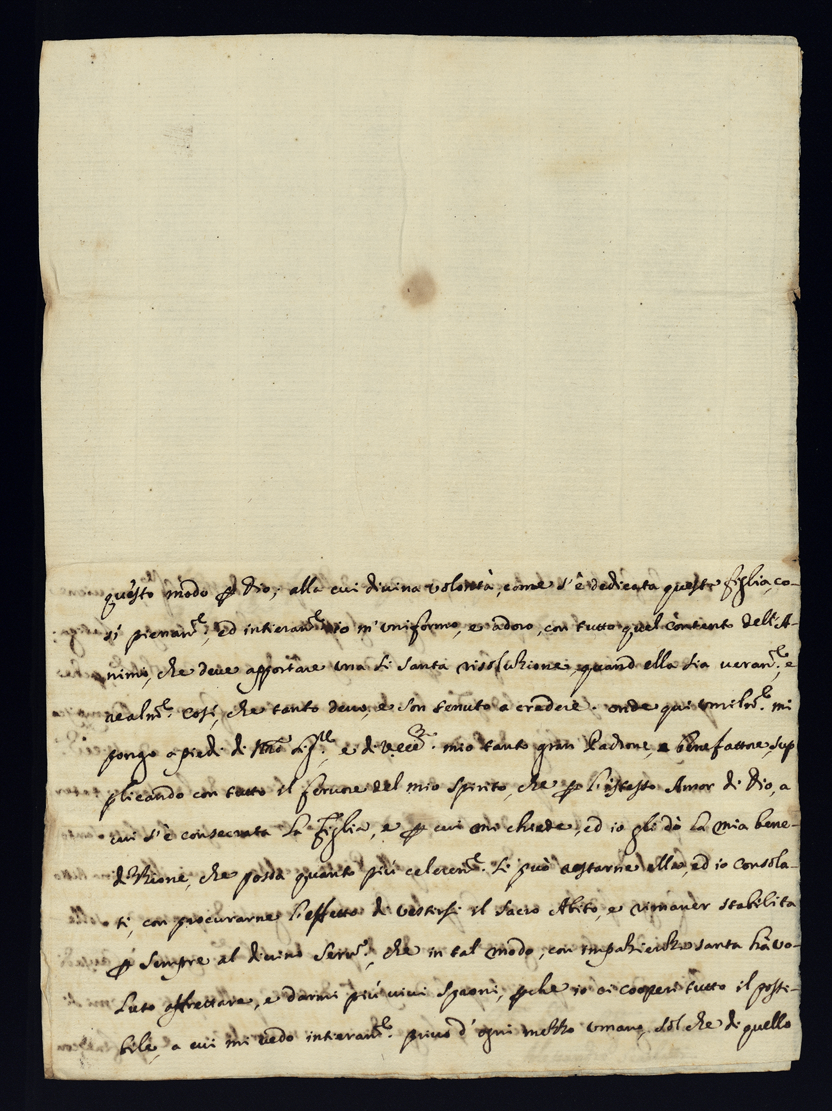 questo modo ꝑ Dio; alla cui divina volontà, come s'è dedicata questa figlia, co-
sì pienam.te, ed intieram.te io m'uniformo, e adoro, con tutto quel contento dell'A-
nimo, che deve apportare una sì santa rissoluzione, quand'ella sia veram.te, e
realm.te così, che tanto devo, e son tenuto a credere. onde qui umilm.te mi
pongo a piedi di e di mio tanto gran Padrone, e benefattore, sup
plicando con tutto il fervore del mio spirito, che ꝑ l'istesso Amor di Dio, a
cui s'è consecrata la figlia, e ꝑ cui mi chiede, ed io gli dò la mia bene-
dizzione, che possa quanto più celerem.te si può restarne ella, ed io consola-
ti, con procurarne l'effetto di vestirsi il sacro Abito, e rimaner stabilita
ꝑ sempre al divino che in tal modo, con impazienza santa hà vo-
luto affrettare, e darmi più vivi sproni, ꝑche io ci cooperi tutto il possi-
bile, a cui mi vedo intieram.te privo d'ogni mezzo umano, sol che di quello